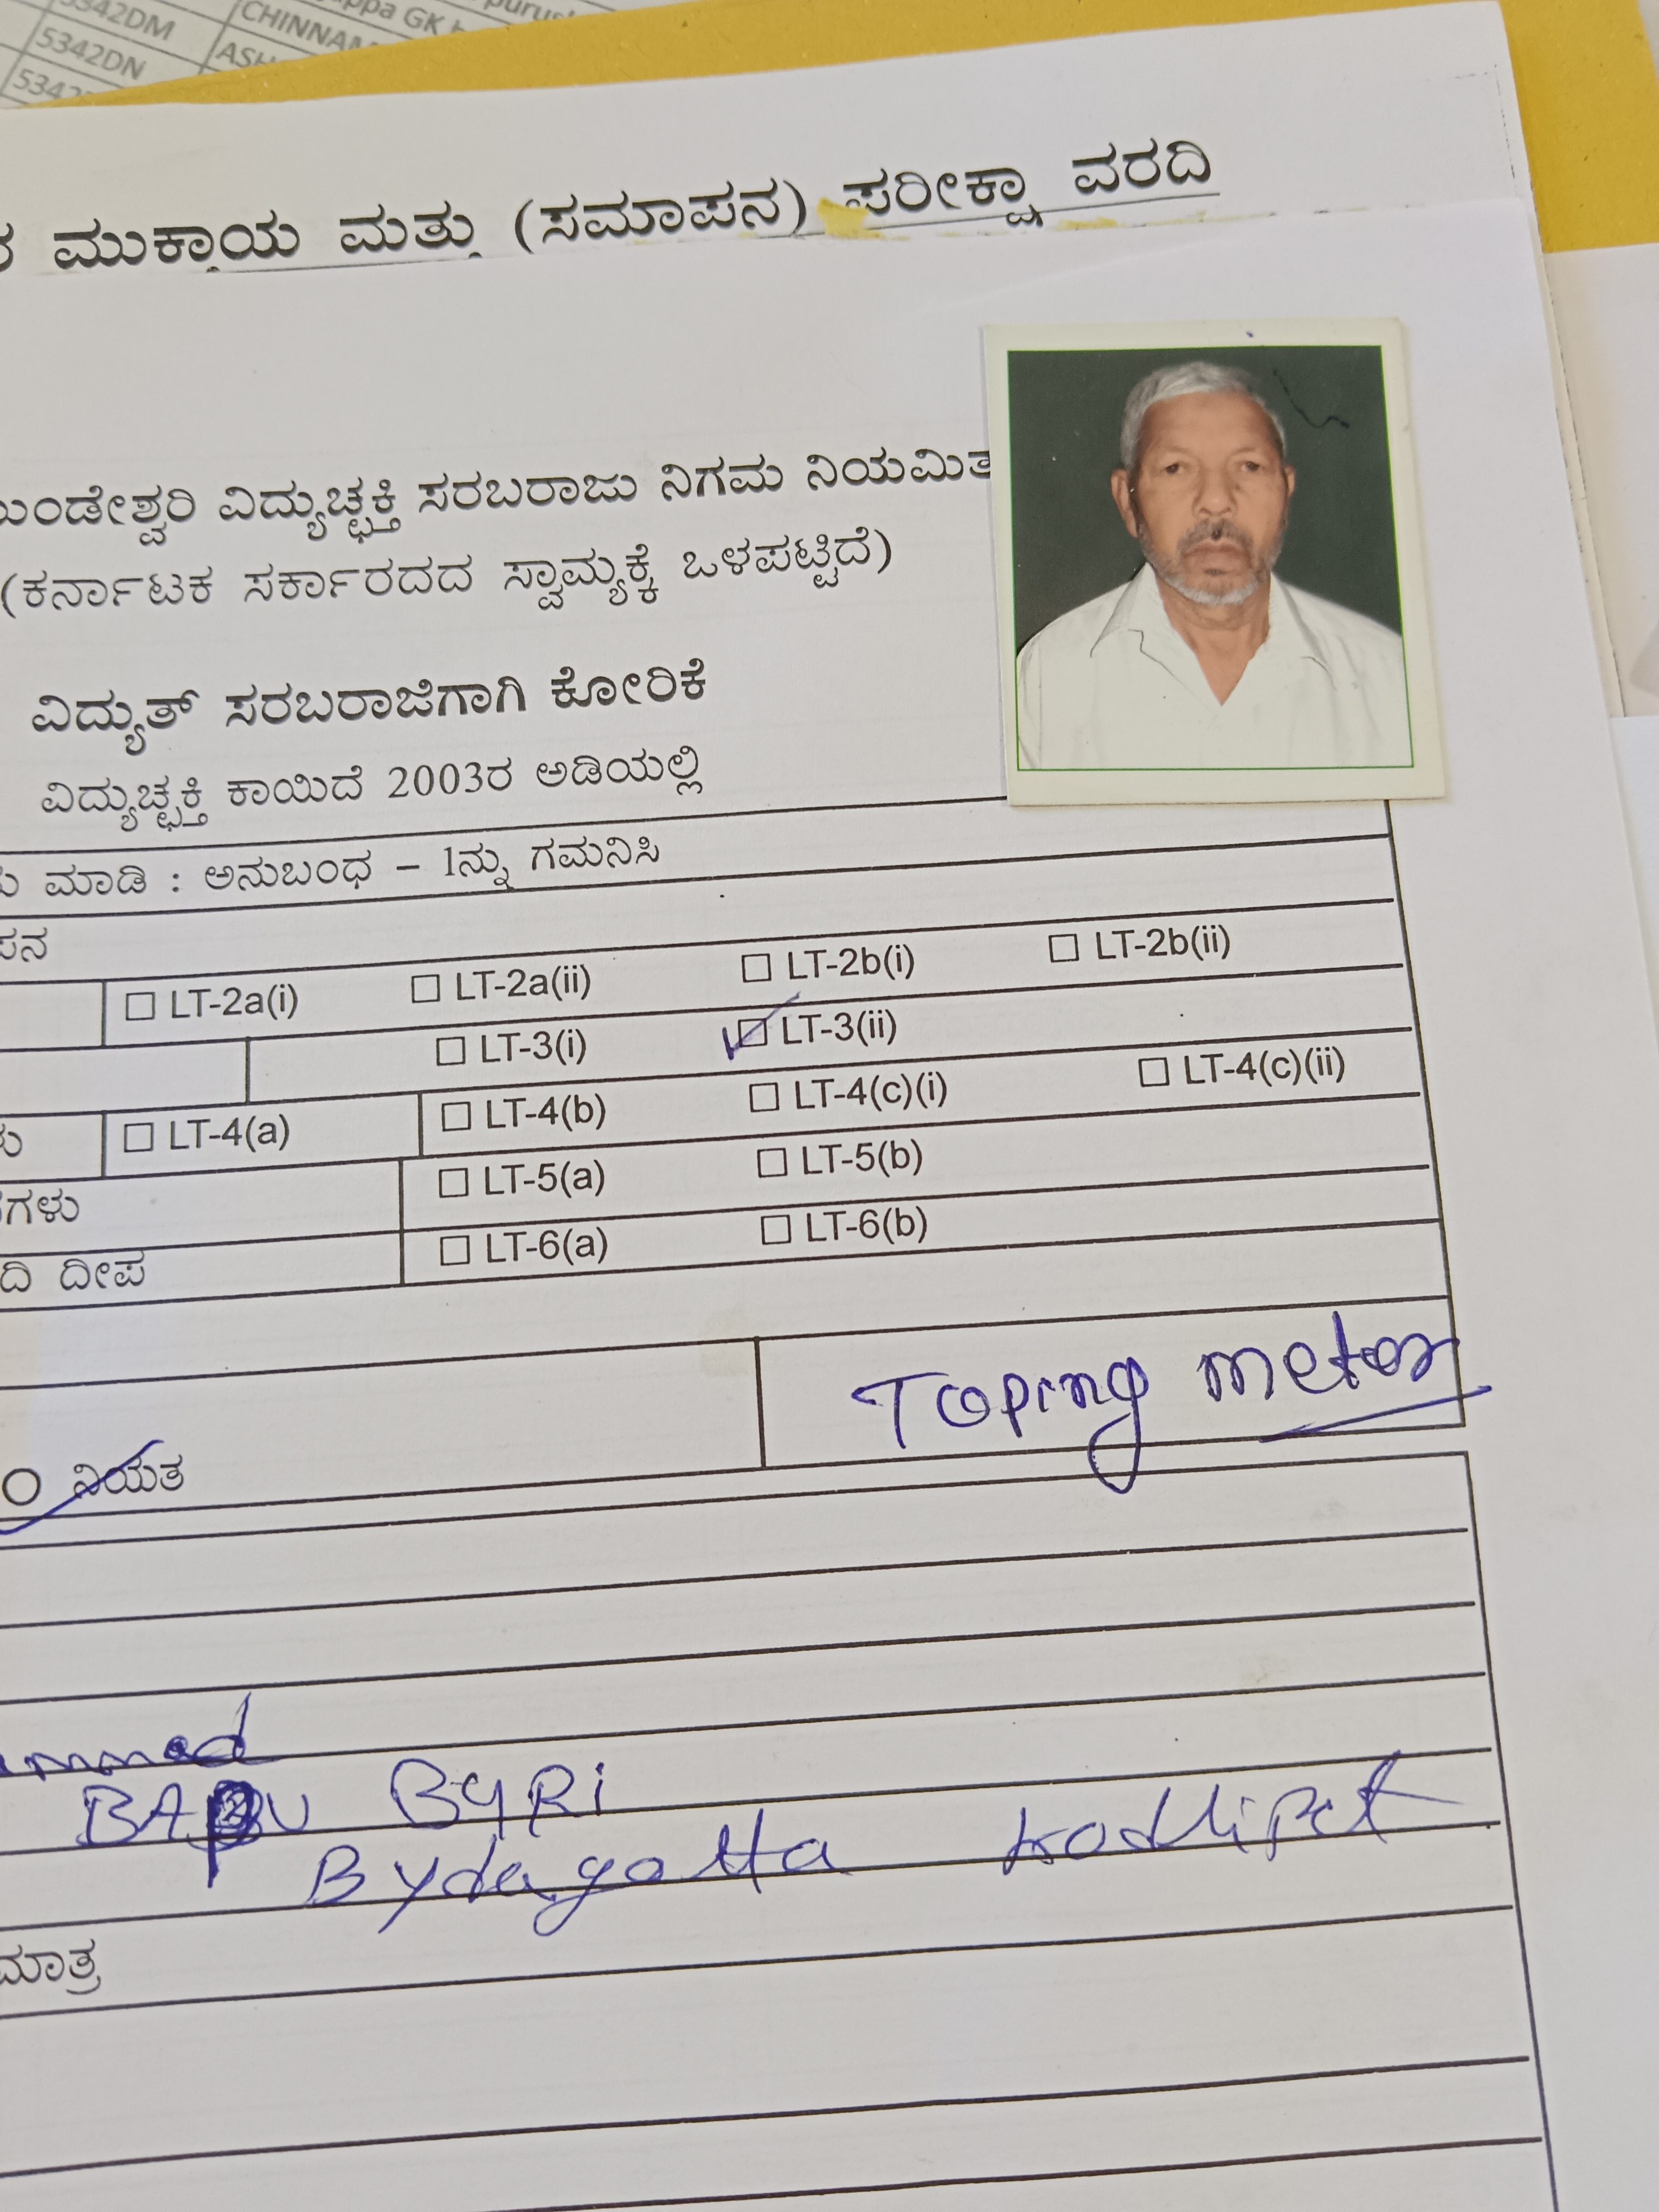 5342DM CHINNAM
5342DN
ಮುಕ್ತಾಯ ಮತ್ತು (ಸಮಾಪನ) ಪರೀಕ್ಷಾ ವರದಿ
ಮುಂಡೇಶ್ವರಿ ವಿದ್ಯುಚ್ಛಕ್ತಿ ಸರಬರಾಜು ನಿಗಮ ನಿಯಮಿತ
(ಕರ್ನಾಟಕ ಸರ್ಕಾರದದ ಸ್ವಾಮ್ಯಕ್ಕೆ ಒಳಪಟ್ಟಿದೆ)
ವಿದ್ಯುತ್ ಸರಬರಾಜಿಗಾಗಿ ಕೋರಿಕೆ
ವಿದ್ಯುಚ್ಛಕ್ತಿ ಕಾಯಿದೆ 2003ರ ಅಡಿಯಲ್ಲಿ
ಮಾಡಿ : ಅನುಬಂಧ – 1ನ್ನು ಗಮನಿಸಿ
ಪನ
LT-2a(i) LT-2a(ii) LT-2b(i) LT-2b(ii)
LT-3(i) LT-3(ii)
LT-4(a) LT-4(b) LT-4(c)(i) LT-4(c)(ii)
ಗಳು LT-5(a) LT-5(b)
ದಿ ದೀಪ LT-6(a) LT-6(b)
Toping meter
ನಿಯತ
ammed
BAPU BYRI
Bydagotta kodlipet
ಮಾತ್ರ